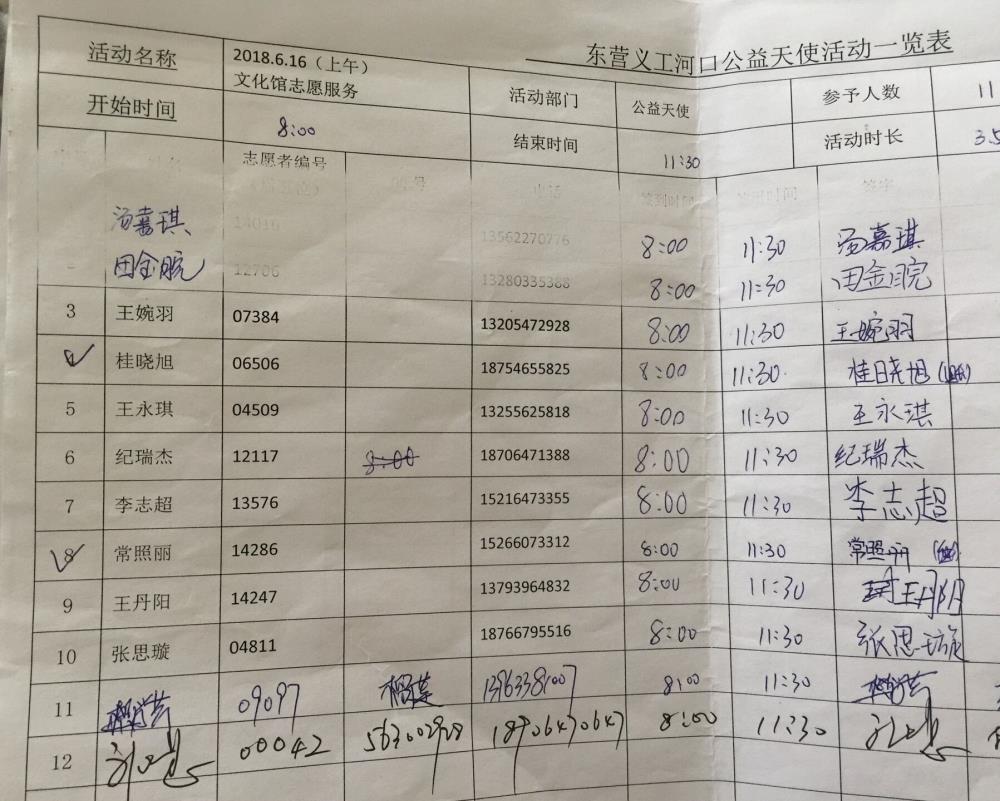 东营义工河口公益天使活动一览表
活动名称 2018.6.16（上午） 文化馆志愿服务 活动部门 公益天使 参予人数 11
开始时间 8:00 结束时间 11:30 活动时长 3.5
志愿者编号 电话 签到时间 签字
汤嘉琪 14016 13562270776 8:00 11:30 汤嘉琪
田金皖 12706 13280335388 8:00 11:30 田金皖
3 王婉羽 07384 13205472928 8:00 11:30 王婉羽
桂晓旭 06506 18754655825 8:00 11:30 桂晓旭
5 王永琪 04509 13255625818 8:00 11:30 王永琪
6 纪瑞杰 12117 8:00 18706471388 8:00 11:30 纪瑞杰
7 李志超 13576 15216473355 8:00 11:30 李志超
8 常照丽 14286 15266073312 8:00 11:30 常照丽
9 王丹阳 14247 13793964832 8:00 11:30 王丹阳
10 张思璇 04811 18766795516 8:00 11:30 张思璇
11 09097 8:00 11:30
12 00042 18906470647 8:00 11:30